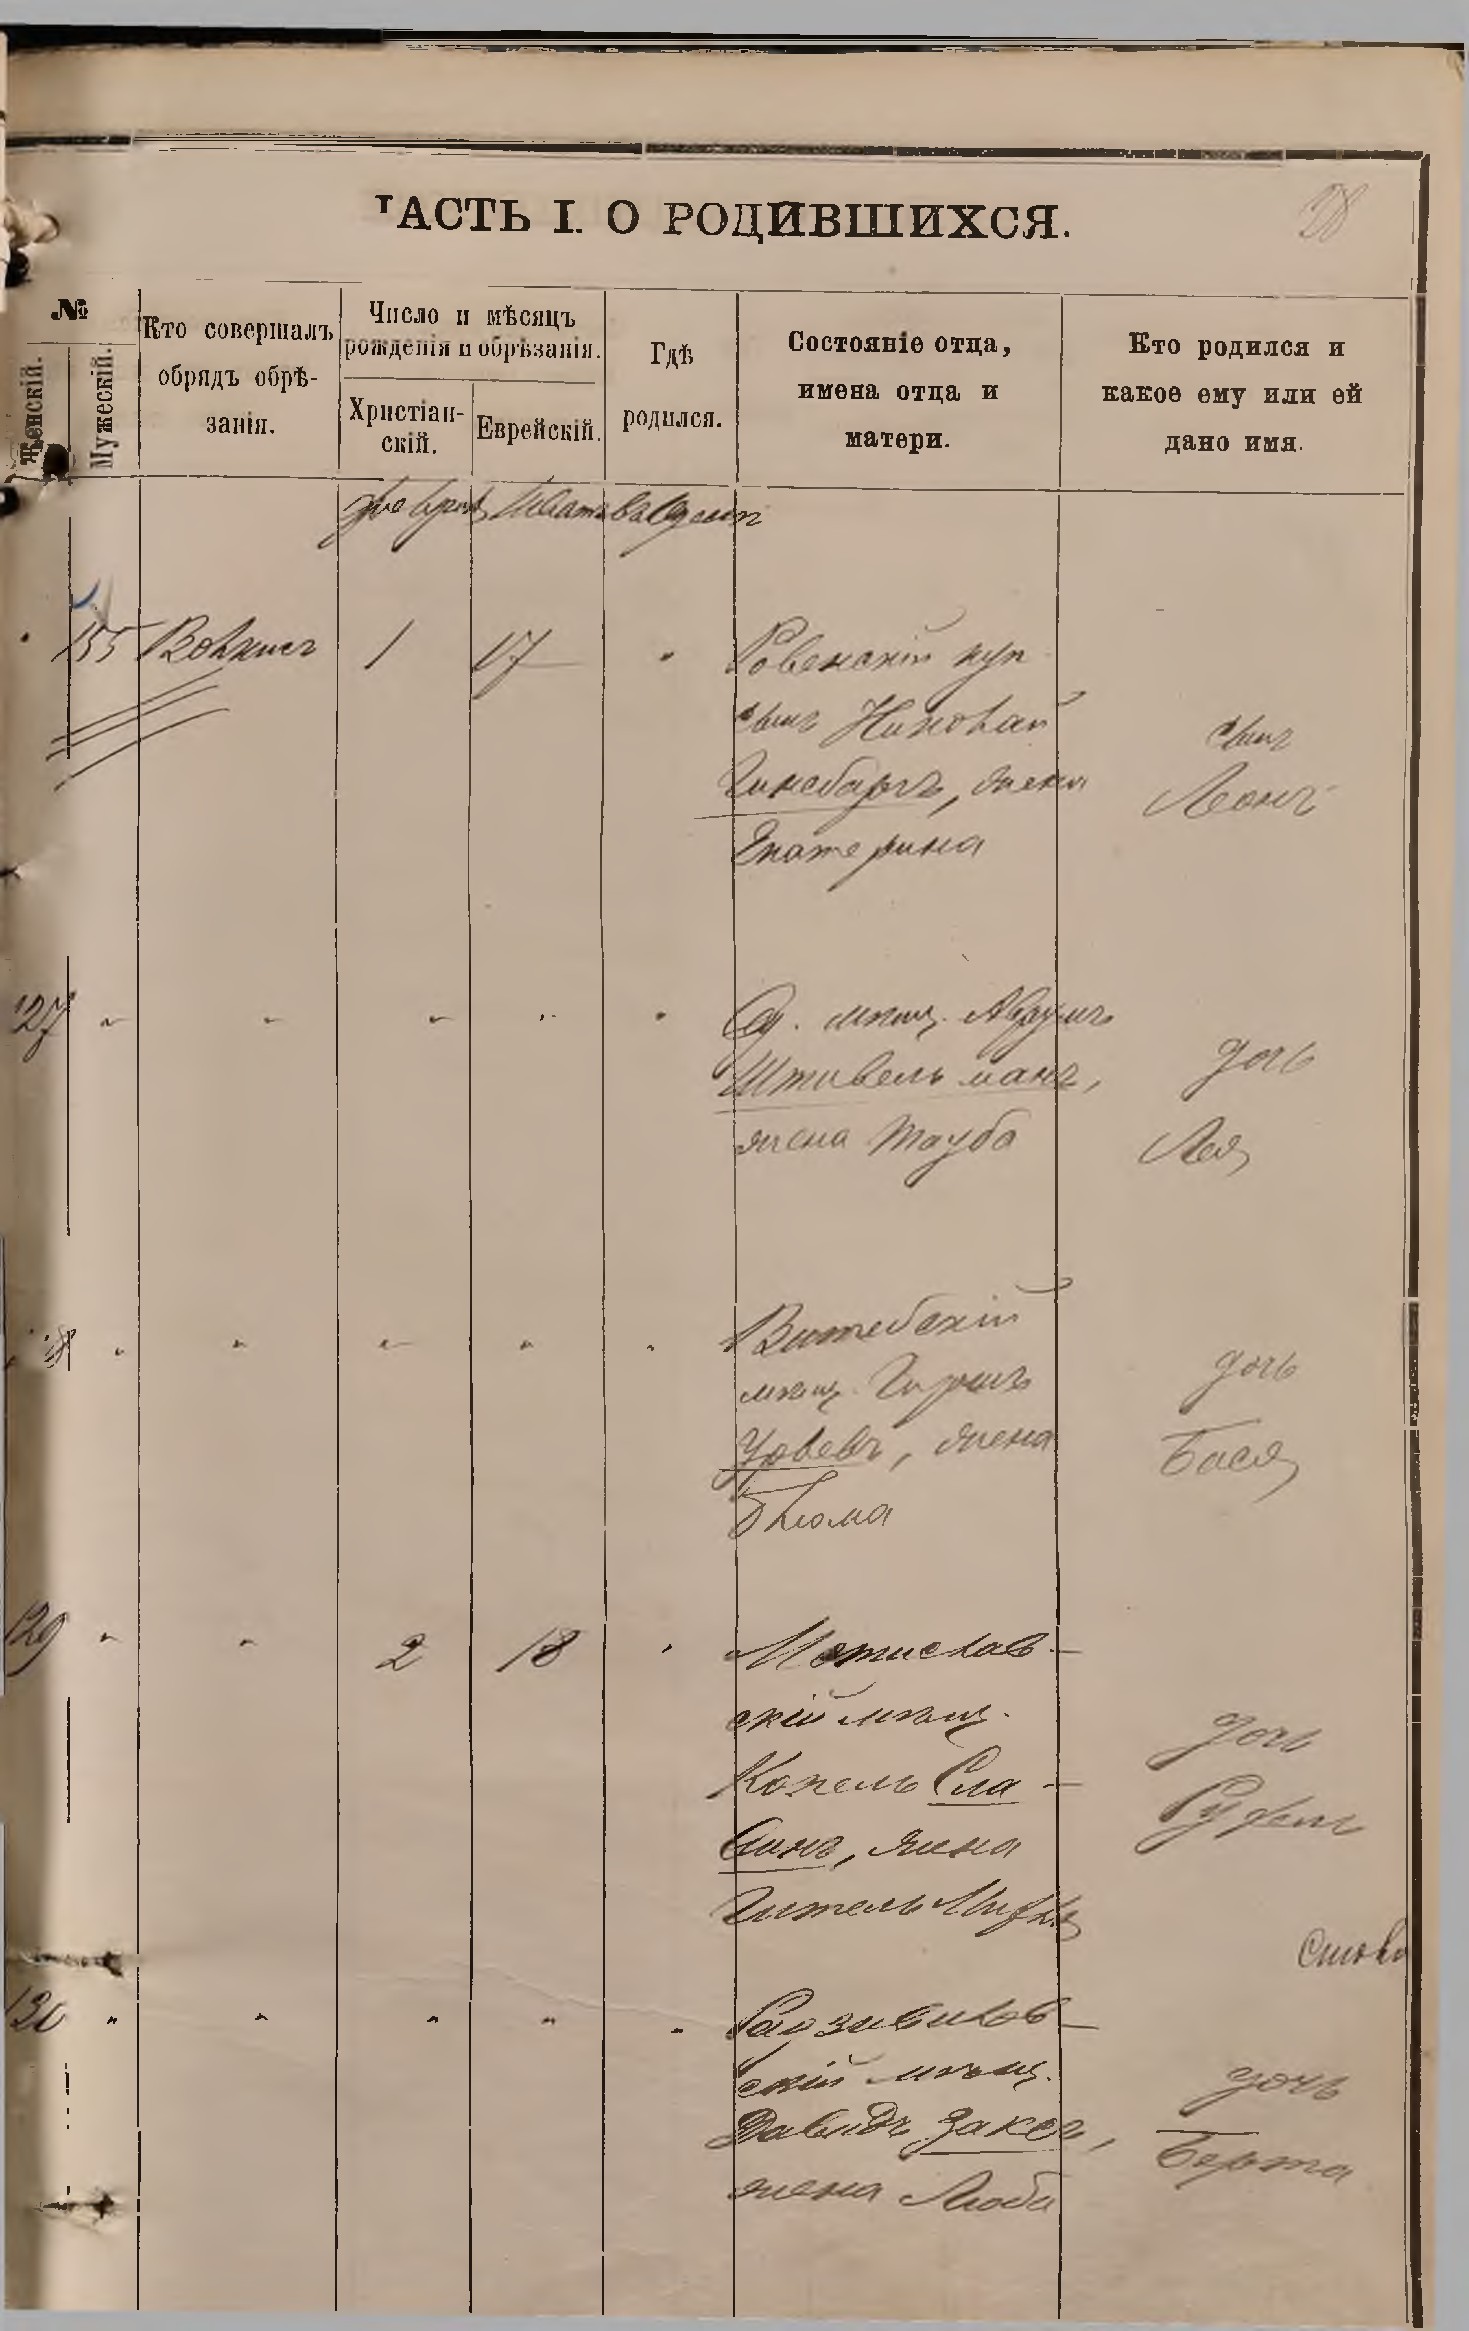 ЧАСТЬ I. О РОДИВШИХСЯ.
28
№
Женскій.
Мужескій.
Кто совершалъ
обрядъ обрѣ-
занія.
Число и мѣсяцъ
рожденія и обрѣзанія.
Христіан-
скій.
Еврейскій.
Гдѣ
родился.
Состояніе отца,
имена отца и
матери.
Кто родился и
какое ему или ей
дано имя.
Февраль Шватъ въ Одессѣ
155 1 17 " Ровенскій куп
сынъ Николай
Гинсбаргъ, жена
Екатерина
сынъ
Леонъ
127 " " " " " Од. мѣщ. Аврумъ
Штивельманъ,
жена Тауба
дочь
Лея
" " " " " Витебскій
мѣщ. Гиршъ
жена
Блюма
дочь
Бася
129 " " 2 18 " Мстислав-
скій мѣщ.
Копель Сла-
винъ, жена
Гитель
дочь
Рухель
130 " " " " " Радзивилов-
скій мѣщ.
Давидъ Заксъ,
жена Люба
дочь
Берта